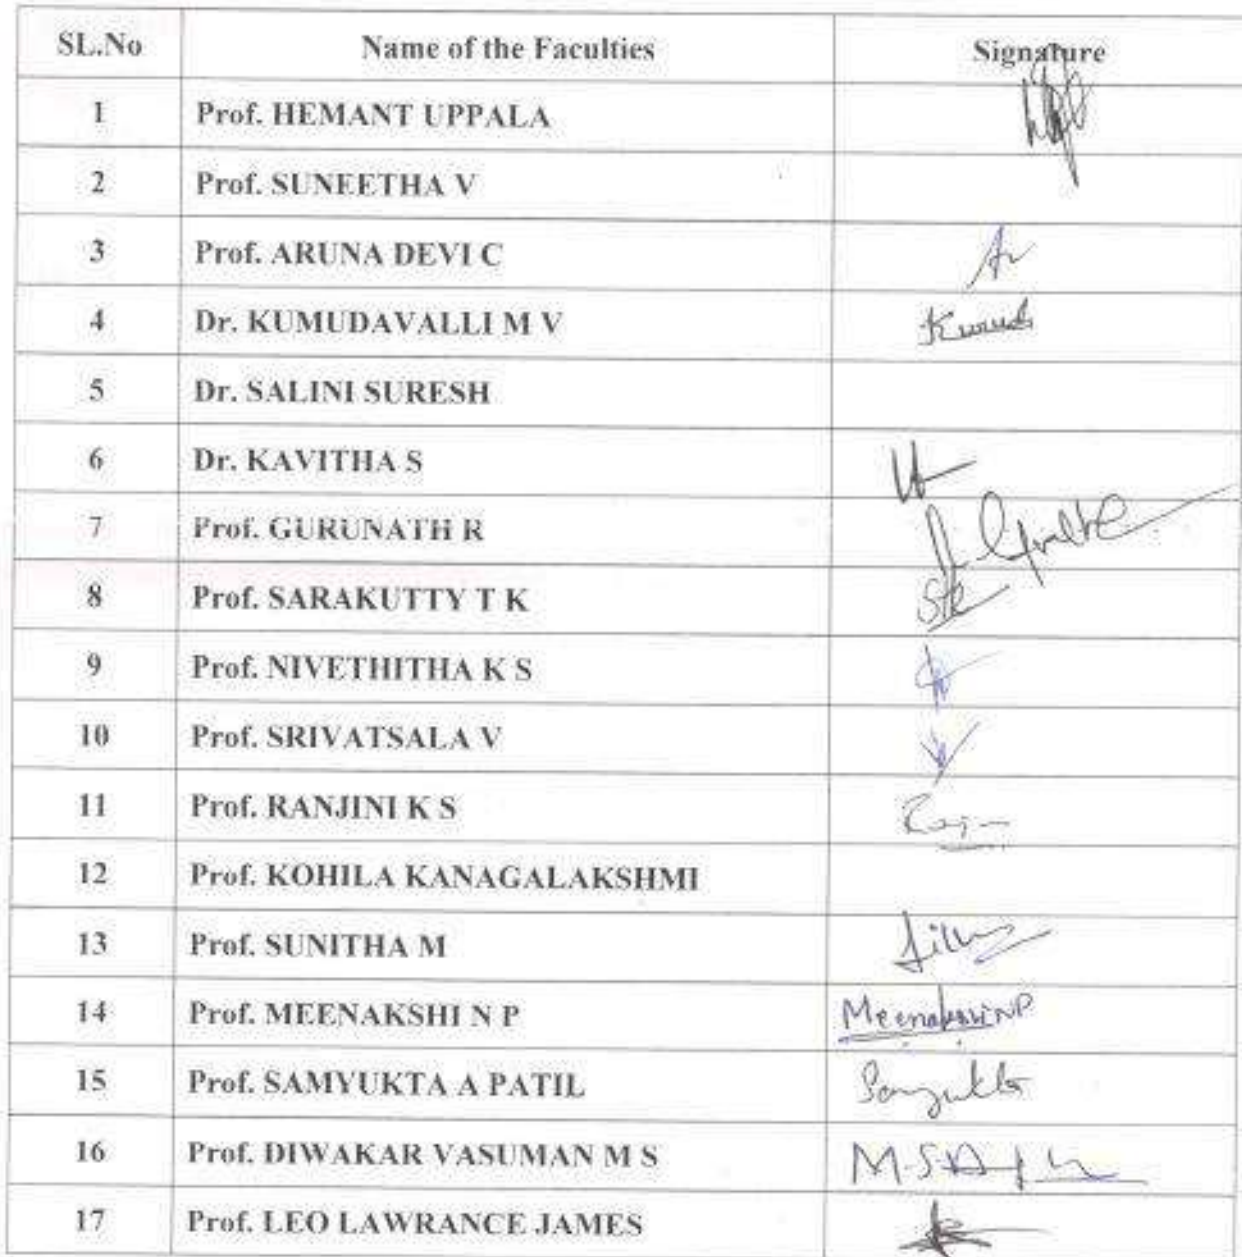 SL.No Name of the Faculties Signature
1 Prof. HEMANT UPPALA
2 Prof. SUNEETHA V
3 Prof. ARUNA DEVI C
4 Dr. KUMUDAVALLI M V
5 Dr. SALINI SURESH
6 Dr. KAVITHA S
7 Prof. GURUNATH R
8 Prof. SARAKUTTY T K
9 Prof. NIVETHITHA K S
10 Prof. SRIVATSALA V
11 Prof. RANJINI K S
12 Prof. KOHILA KANAGALAKSHMI
13 Prof. SUNITHA M
14 Prof. MEENAKSHI N P Meenakshi NP
15 Prof. SAMYUKTA A PATIL Samyukta
16 Prof. DIWAKAR VASUMAN M S
17 Prof. LEO LAWRANCE JAMES